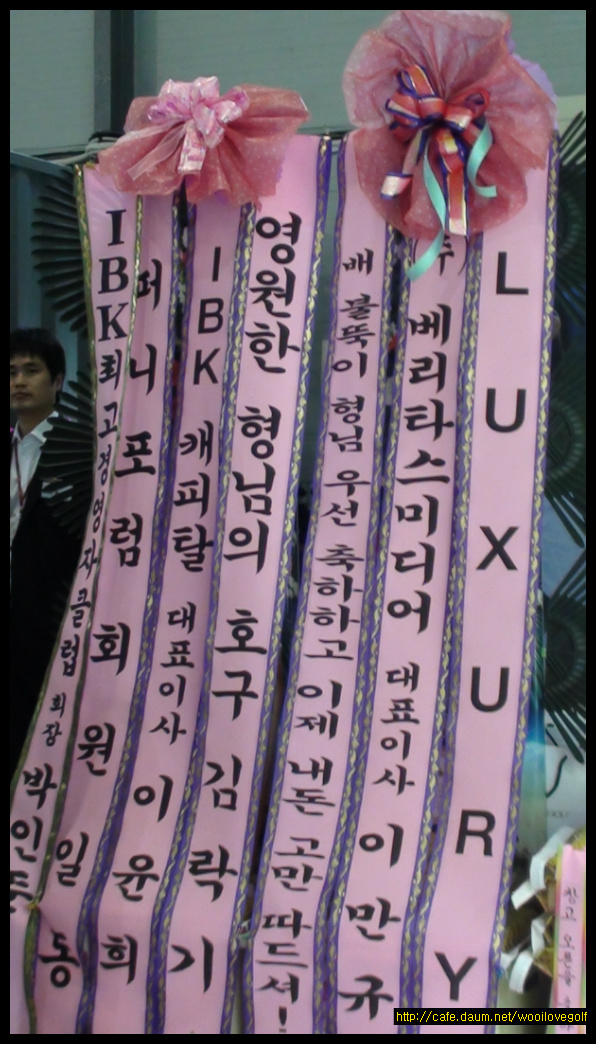 IBK최고경영자클럽 회장 박인
퍼니포럼 회원일동
IBK 캐피탈 대표이사 이윤희
영원한 형님의 호구 김락기
배 불뚝이 형님 우선 축하하고 이제 내돈 고만 따드셔!
(주)베리타스미디어 대표이사 이만규
LUXURY
창고 오픈을
http://cafe.daum.net/wooilovegolf